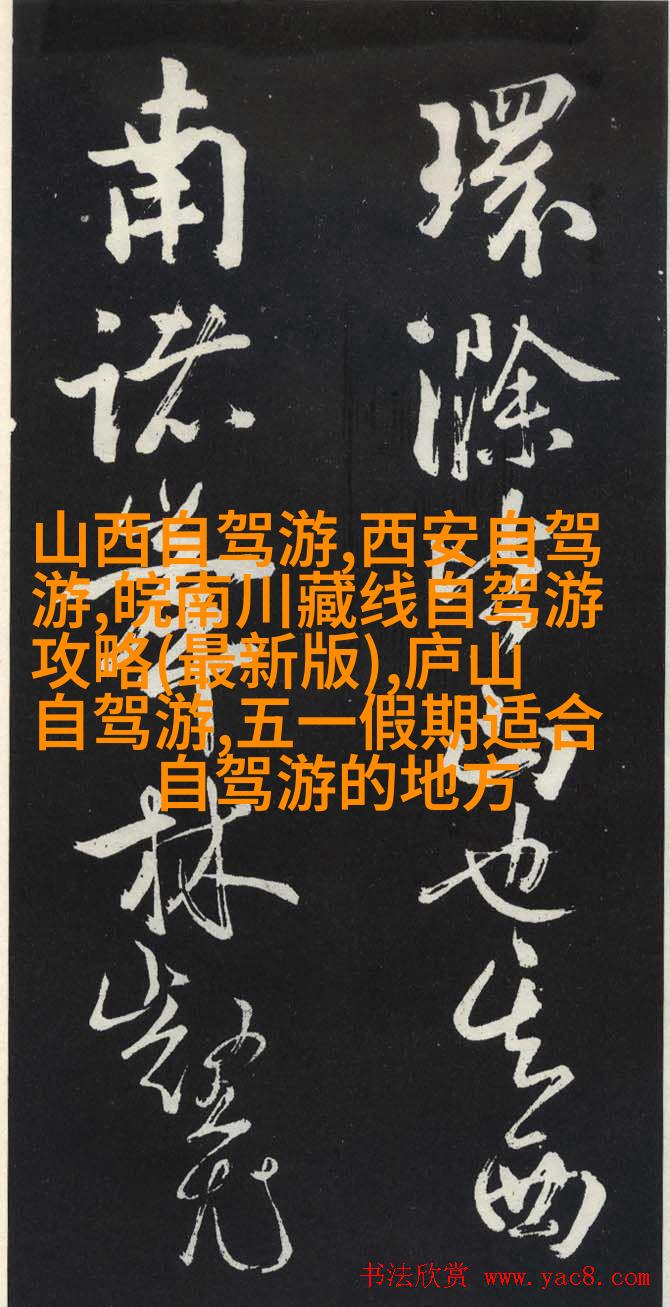 環滁皆山也其西
南諸峯林壑尤
山西自驾游,西安自驾
游,皖南川藏线自驾游
攻略(最新版),庐山
自驾游,五一假期适合
自驾游的地方
书法欣赏 www.yac8.com